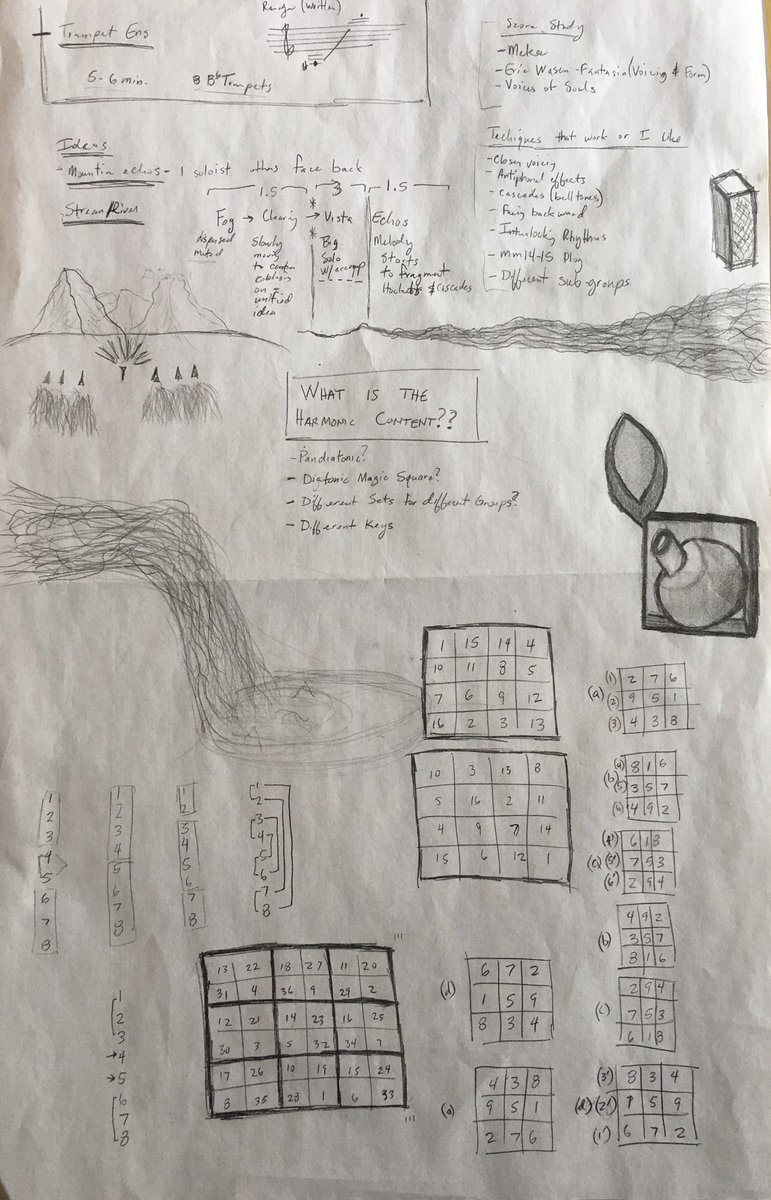 Range (Written)
Trumpet Ens
5-6 min.
8 Bb Trumpets
Score Study
- Eric Wasen - Fantasia (Voicing & Form)
- Voices of Souls
Ideas
Mountin echos - 1 soloist others face back
1.5 3 1.5
Stream/River
Fog → Clearing → Vista
Echos
dispersed
muted
Slowly
moving
to common
on a
unified
idea
* *
Big
Solo
w/accomp
Melody
Starts
to fragment
Hockets & Cascades
Techiques that work or I like
- Closer voicing
- Antiphonal effects
- Cascades (bell tones)
- Facing backward
- Interlocking Rhythms
- mm14-15 Plog
- Different Sub-groups
WHAT IS THE
HARMONIC CONTENT??
- Pandiatonic?
- Diatonic Magic Square?
- Different Sets for different Groups?
- Different Keys
1 15 14 4
10 11 8 5
7 6 9 12
16 2 3 13
(a) (1) 2 7 6
(2) 9 5 1
(3) 4 3 8
10 3 13 8
5 16 2 11
4 9 7 14
15 6 12 1
(b) 8 1 6
(5) 3 5 7
4 9 2
(c) 6 1 8
(5') 7 5 3
(6') 2 9 4
1
2
3
4
5
6
7
8
1
2
3
4
5
6
7
8
1
2
3
4
5
6
7
8
1
2
3
4
5
6
7
8
(b) 4 9 2
3 5 7
8 1 6
13 22 18 27 11 20
31 4 36 9 29 2
12 21 14 23 16 25
30 3 5 32 34 7
17 26 10 19 15 24
8 35 28 1 6 33
(d) 6 7 2
1 5 9
8 3 4
(c) 2 9 4
7 5 3
6 1 8
1
2
3
→4
→5
6
7
8
(a) 4 3 8
9 5 1
2 7 6
(3') 8 3 4
(d) (2') 1 5 9
(1') 6 7 2